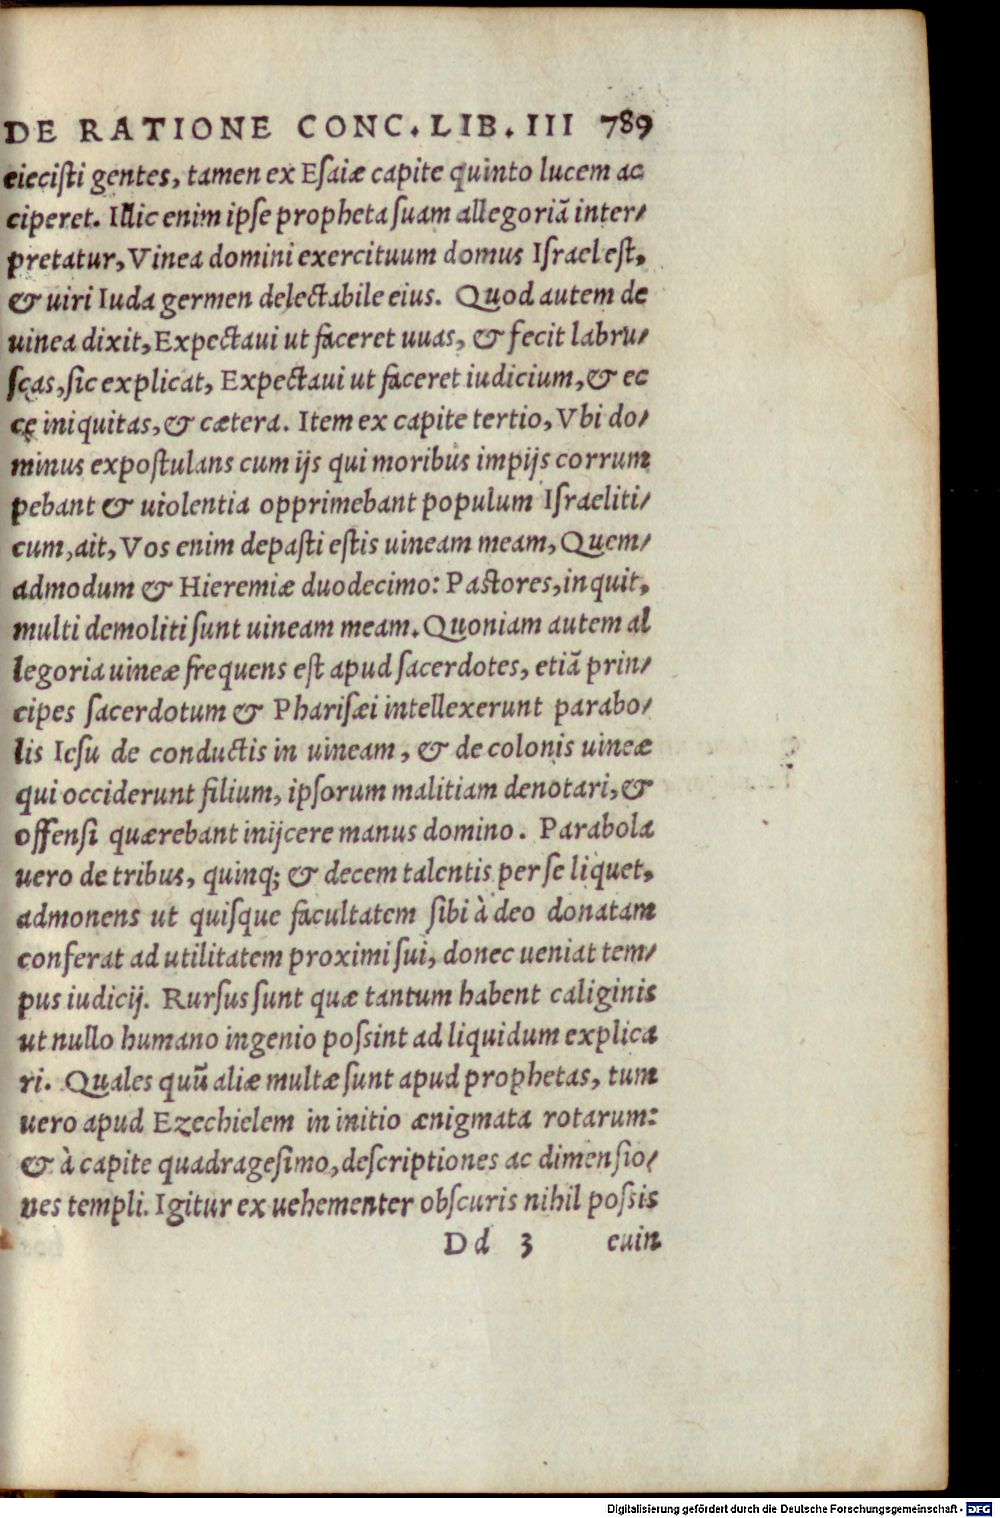 DE RATIONE CONC. LIB. III 789
eiecisti gentes, tamen ex Esaiæ capite quinto lucem ac
ciperet. Illic enim ipse propheta suam allegoriā inter/
pretatur, Vinea domini exercituum domus Israel est,
& uiri Iuda germen delectabile eius. Quod autem de
uinea dixit, Expectaui ut faceret uuas, & fecit labru/
scas, sic explicat, Expectaui ut faceret iudicium, & ec
cę iniquitas, & cætera. Item ex capite tertio, Vbi do/
minus expostulans cum ijs qui moribus impijs corrum
pebant & uiolentia opprimebant populum Israeliti/
cum, ait, Vos enim depasti estis uineam meam, Quem/
admodum & Hieremiæ duodecimo: Pastores, inquit,
multi demoliti sunt uineam meam. Quoniam autem al
legoria uineæ frequens est apud sacerdotes, etiā prin/
cipes sacerdotum & Pharisæi intellexerunt parabo/
lis Iesu de conductis in uineam, & de colonis uineæ
qui occiderunt filium, ipsorum malitiam denotari, &
offensi quærebant inijcere manus domino. Parabola
uero de tribus, quinq; & decem talentis per se liquet,
admonens ut quisque facultatem sibi à deo donatam
conferat ad utilitatem proximi sui, donec ueniat tem/
pus iudicij. Rursus sunt quæ tantum habent caliginis
ut nullo humano ingenio possint ad liquidum explica
ri. Quales quū aliæ multæ sunt apud prophetas, tum
uero apud Ezechielem in initio ænigmata rotarum:
& à capite quadragesimo, descriptiones ac dimensio/
nes templi. Igitur ex uehementer obscuris nihil possis
Dd 3 euin
Digitalisierung gefördert durch die Deutsche Forschungsgemeinschaft - DFG